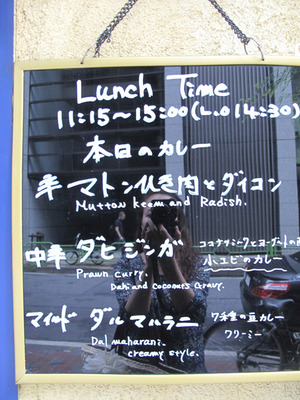 Lunch Time
11:15〜15:00(L.o 14:30)
本日のカレー
辛 マトンひき肉とダイコン
Mutton keem and Radish.
中辛 ダヒジンガ ココナツミルクとヨーグルトの
小エビのカレー
Prawn curry.
Dahi and coconuts Gravy.
マイルド ダルマハラニ 7種の豆カレー
クリーミー
Dal maharani.
creamy style.